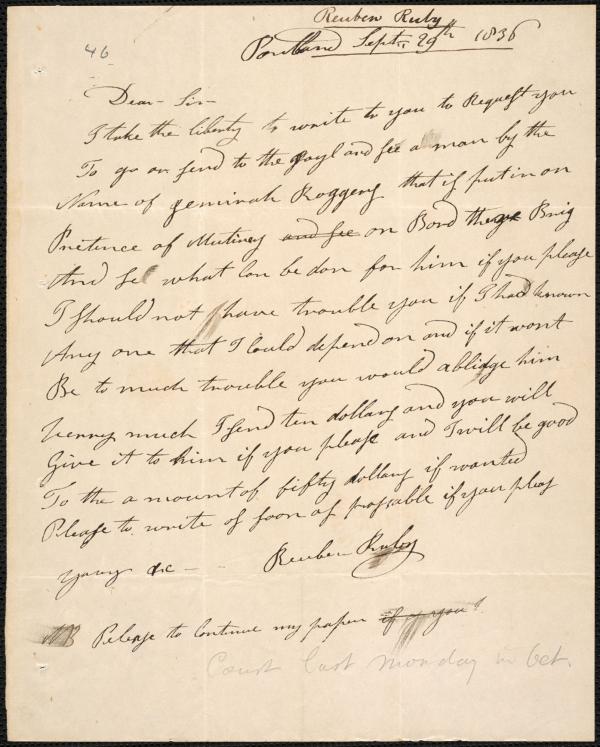 Reuben Ruby
46
Portland Sept. 29th 1836
Dear Sir
I take the liberty to write to you to Request you
To go or send to the Jayl and see a man by the
Name of Jemimah Roggers that is put in on
Pretence of Mutiney and see on Bord the Brig
And se what Can be don for him if you please
I should not have trouble you if I had known
Any one that I Could depend on and if it wont
Be to much trouble you would ablidge him
Verrey much I send ten dollars and you will
Give it to him if you please and I will be good
To the amount of fifty dollars if wanted
Please to write as soon as possable if you pleas
yours &c — Reuben Ruby
NB Please to Continue my paper if you
Court last monday in Oct.